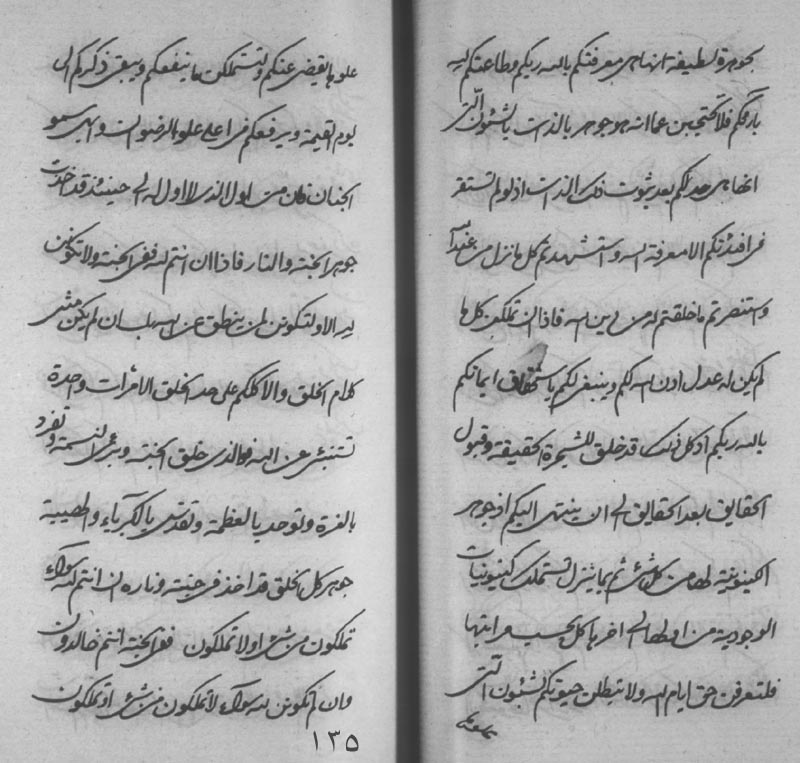 بجوهرة لطيفة انها هي معرفتكم بالله ربكم وطاعتكم لله
بارئكم فلا تحتجبن عما انه هو جوهر بالذات بالشئون التي
انها هي حد لكم بعد ثبوت ذلك الذات اذ لو لم تستقر
في افئدتكم الا معرفة الله واستشهدتم كل ما نزل من عند الله
واستنصرتم ما خلقتم له من دين الله فاذا ان تملكن كلها
لم يكن له عدل اذن الله لكم وينبغي لكم باستحقاق ايمانكم
بالله ربكم اذ كل ذلك قد خلق للشجرة الحقيقة وقبول
الحقايق بعد الحقايق الى ان ينتهى اليكم اذ جوهر
الكينونية لها من كل شئ ثم بما يتنزل لتستملك كينونيات
الوجودية من اولها الى اخرها كل بحسب مراتبها
فلتعرفن حق ايام الله ولا تبطلن حيوتكم بشئون التي
علوها يقضى عنكم ولتستملكن ما ينفعكم ويبقى ذكركم الى
يوم القيمة ويرفعكم في اعلى علو الرضوان وابهى سمو
الجنان فان من اول الذي لا اول له الى حينئذ قد اخذت
جوهر الجنة والنار فاذا ان انتم لله ففى الجنة ولا تكونن
لله الا ولتكونن لمن ينطق عن الله بان لم يكن مثلى
كلام الخلق والا كلكم على حد الخلق الا مرات واحدة
تستنبئ عن الله فوالذى خلق الجنة وبرئ النسمة وتفرد
بالعزة وتوحد بالعظمة وتقدس بالكبرياء والهيبة
جوهر كل الخلق قد اخذ في جنته وناره ان انتم لله سواء
تملكون من شئ او لا تملكون ففى الجنة انتم خالدون
وان لم تكونن لله سواء لا تملكون من شئ او تملكون
١٣٥